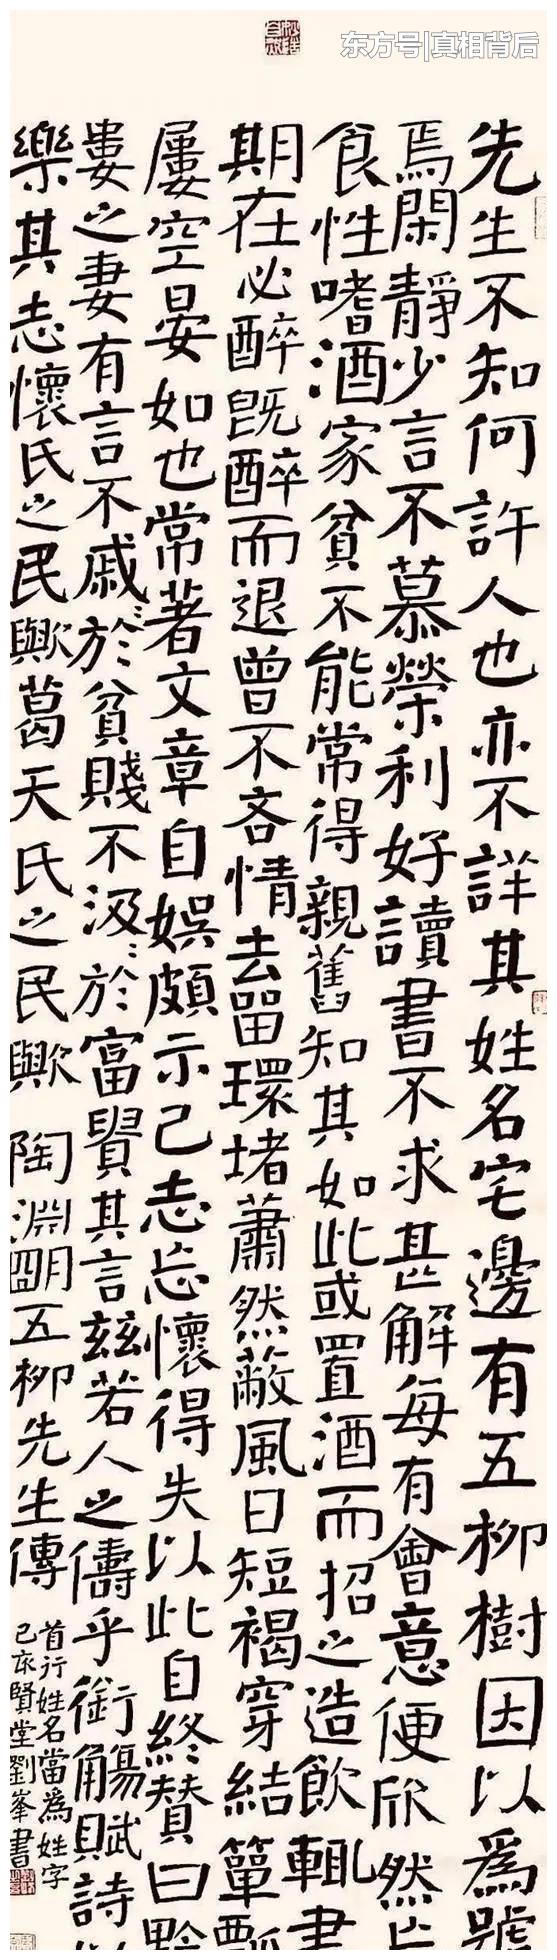 东方号|真相背后
先生不知何許人也亦不詳其姓名宅邊有五柳樹因以為號
焉閑靜少言不慕榮利好讀書不求甚解每有會意便欣然忘
食性嗜酒家貧不能常得親舊知其如此或置酒而招之造飲輒盡
期在必醉既醉而退曾不吝情去留環堵蕭然蔽風日短褐穿結簞瓢
屢空晏如也常著文章自娛頗示己志忘懷得失以此自終贊曰黔
婁之妻有言不戚〻於貧賤不汲〻於富貴其言茲若人之儔乎銜觴賦詩以
樂其志懷氏之民歟葛天氏之民歟 陶淵明五柳先生傳
首行姓名當為姓字
己亥賢堂劉峯書